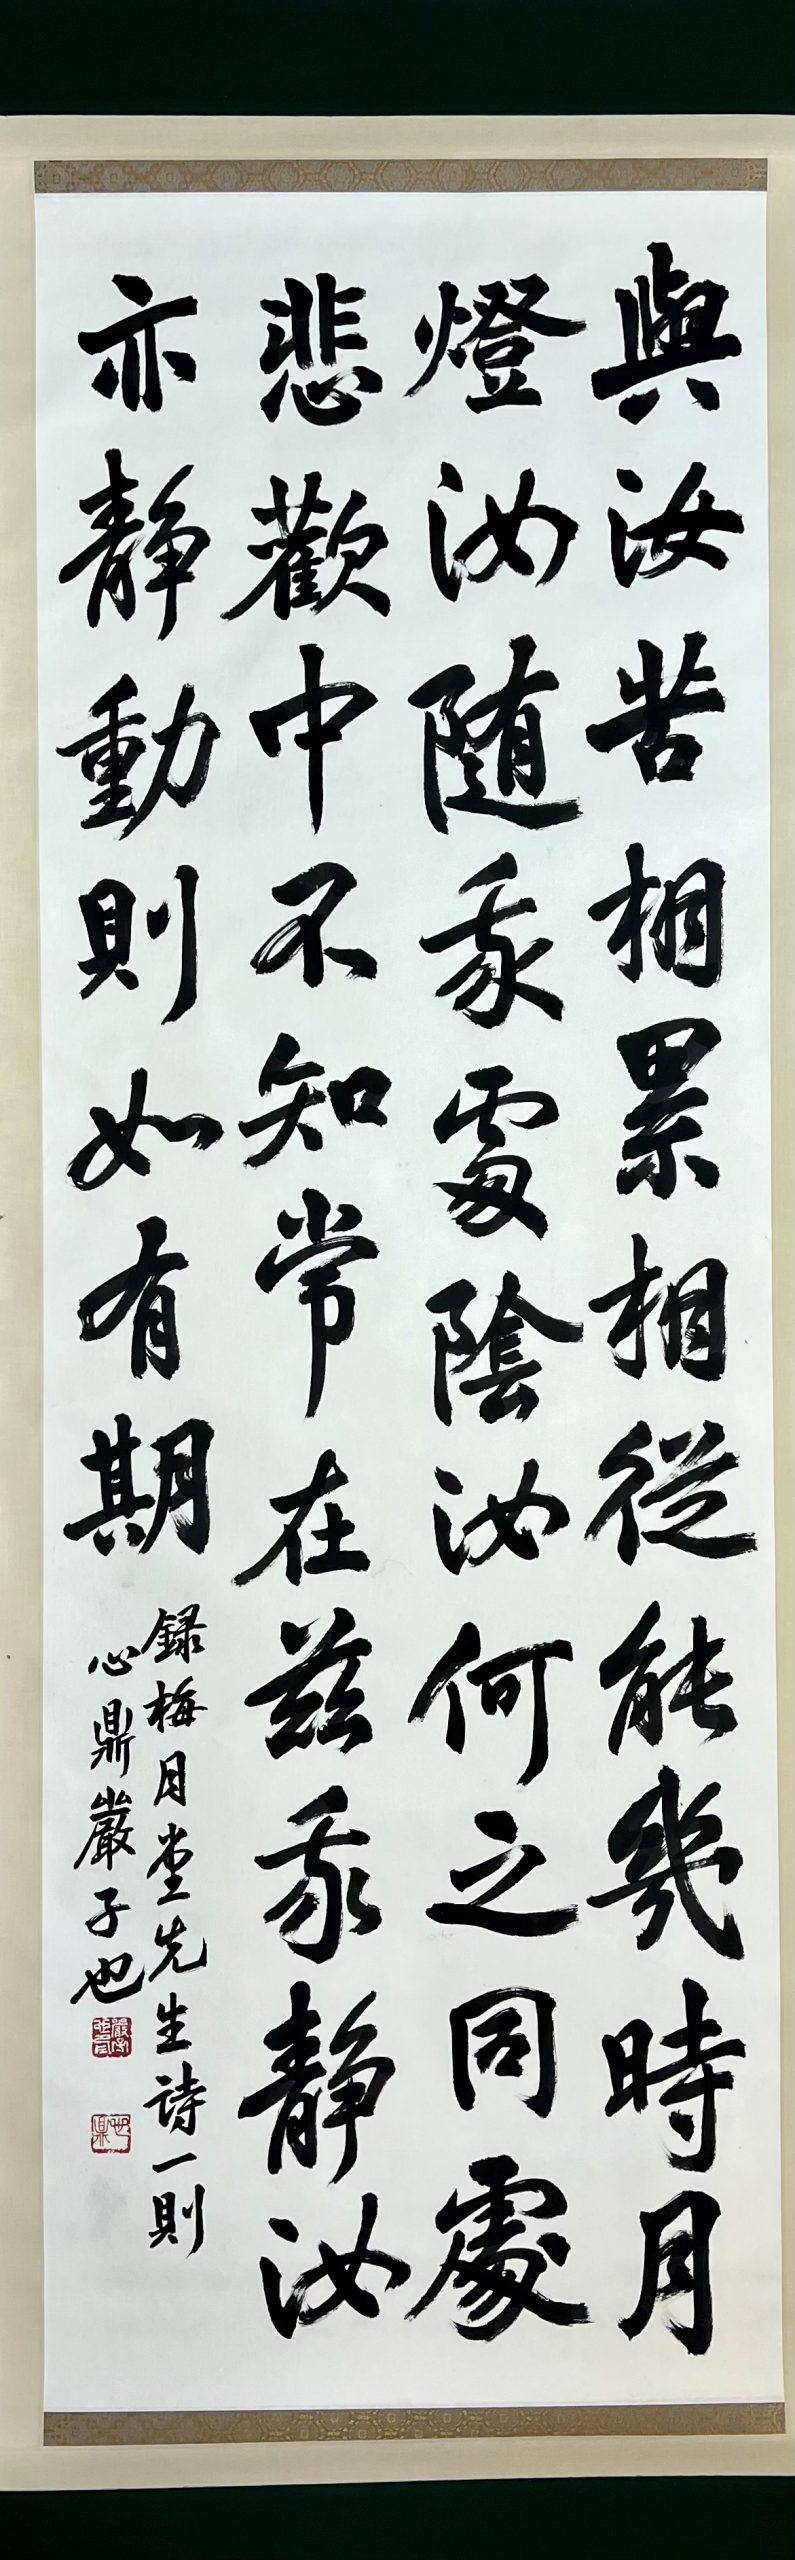 與汝苦相累相從能幾時月
燈汝随我處陰汝何之同處
悲歡中不知常在茲我靜汝
亦靜動則如有期
録梅月堂先生詩一則
心鼎巖子也